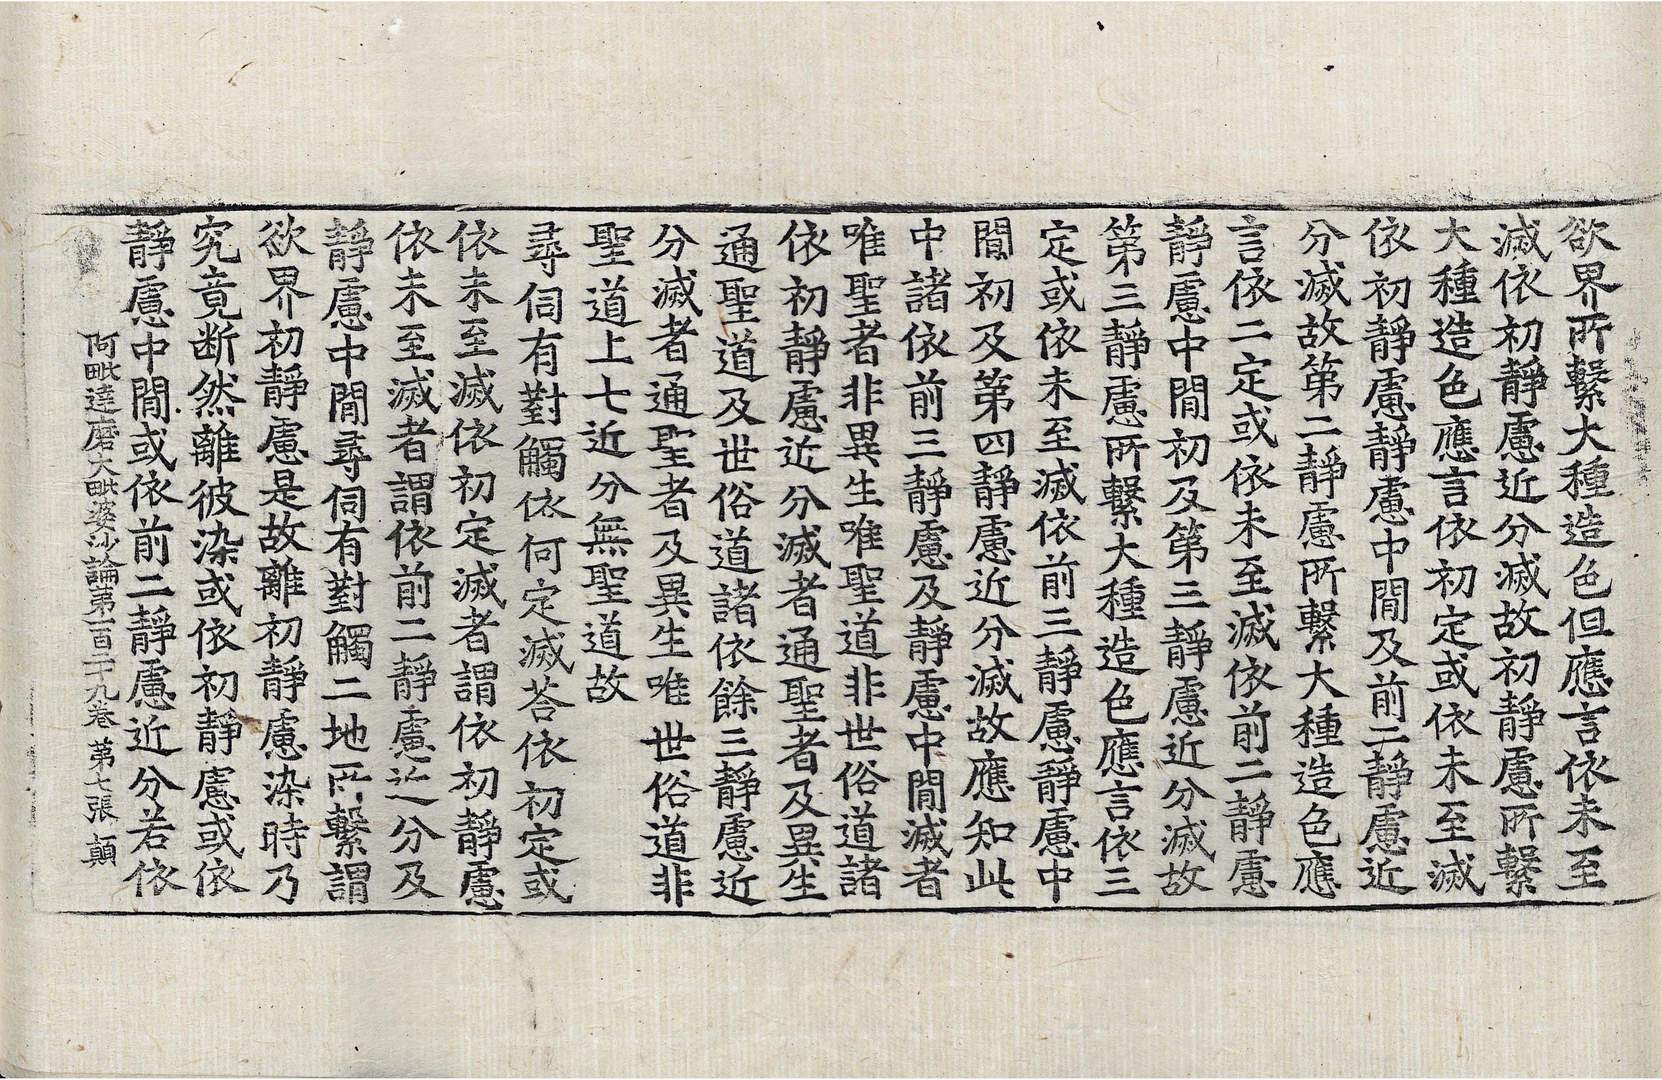 欲界所繫大種造色但應言依未至
滅依初靜慮近分滅故初靜慮所繫
大種造色應言依初定或依未至滅
依初靜慮靜慮中閒及前二靜慮近
分滅故第二靜慮所繫大種造色應
言依二定或依未至滅依前二靜慮
靜慮中閒初及第三靜慮近分滅故
第三靜慮所繫大種造色應言依三
定或依未至滅依前三靜慮靜慮中
閒初及第四靜慮近分滅故應知此
中諸依前三靜慮及靜慮中閒滅者
唯聖者非異生唯聖道非世俗道諸
依初靜慮近分滅者通聖者及異生
通聖道及世俗道諸依餘三靜慮近
分滅者通聖者及異生唯世俗道非
聖道上七近分無聖道故
尋伺有對觸依何定滅荅依初定或
依未至滅依初定滅者謂依初靜慮
依未至滅者謂依前二靜慮近分及
靜慮中閒尋伺有對觸二地所繫謂
欲界初靜慮是故離初靜慮染時乃
究竟斷然離彼染或依初靜慮或依
靜慮中閒或依前二靜慮近分若依
阿毗達磨大毗婆沙論第一百二十九卷 第七張 顛